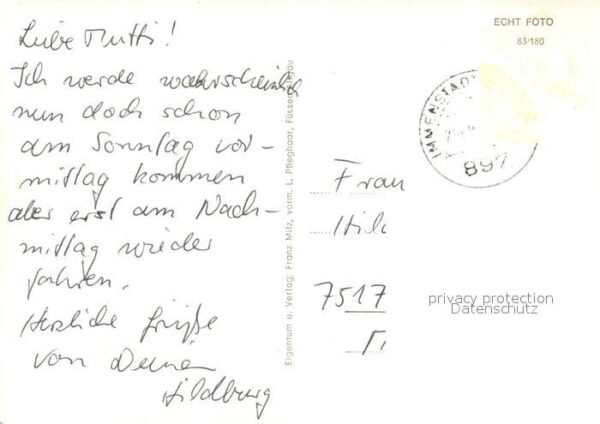 Liebe Mutti!
Ich werde wahrscheinlich
nun doch schon
am Sonntag vor-
mittag kommen
aber erst am Nach-
mittag wieder
fahren.
Herzliche Grüße
von Deiner
Hildburg
Eigentum u. Verlag: Franz Milz, vorm. L. Pfleghaar, Füssen
ECHT FOTO
83/180
IMMENSTADT
897
Frau
7517
privacy protection
Datenschutz